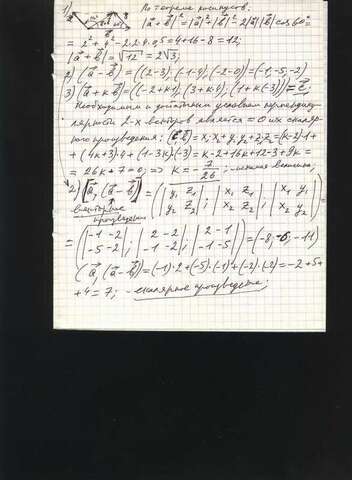 1) По теореме косинусов:
|a⃗+b⃗|² = |a⃗|²+|b⃗|²-2|a⃗||b⃗|cos 60°
= 2²+4²-2·2·4·0,5=4+16-8=12;
|a⃗+b⃗|=√12=2√3;
2) (a⃗-b⃗)=((2-3); (-1-4), (-2-0))=(-1,-5,-2)
3) (a⃗+кb⃗)=((-2+к1), (3+к4), (1+к(-3)))=c⃗;
Необходимым и достаточным условием перпендику
лярности 2-х векторов является =0 их скаляр
ного произведения: (c⃗,b⃗)=x₁x₂+y₁y₂+z₁z₂=(к-2)·1+
+(4к+3)4+(1-3к)(-3)=к-2+16к+12-3+9к=
=26к+7=0; ⇒ к=-7/26; -искомая величина,
2) [a⃗, (a⃗-b⃗)]=(|y₁ z₁|; |x₁ z₁|; |x₁ y₁|
векторное |y₂ z₂| |x₂ z₂| |x₂ y₂|)=
произведение
=(|-1 -2|; |2 -2|; |2 -1|)=(-8,-6,-11)
|-5 -2| |-1 -2| |-1 -5|
(a⃗, (a⃗-b⃗))=(-1)·2+(-5)·(-1)+(-2)·(-2)=-2+5+
+4=7; -скалярное произведение;